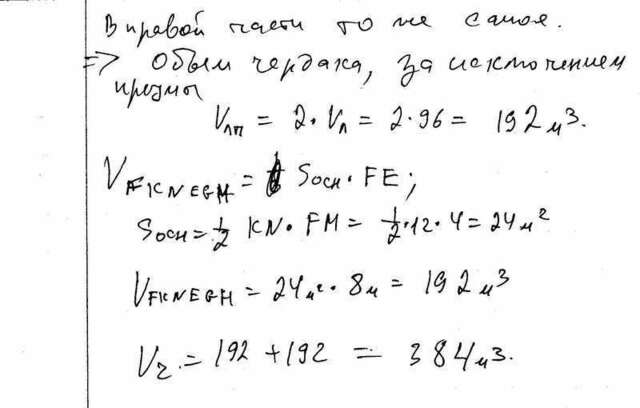 В правой части то же самое.
=> Объём чердака, за исключением
призмы
Vлп = 2·Vл = 2·96 = 192 м³.
VFKNEGH = Sосн·FE;
Sосн = 1/2 KN·FM = 1/2·12·4 = 24 м²
VFKNEGH = 24 м²·8 м = 192 м³
Vч. = 192 + 192 = 384 м³.